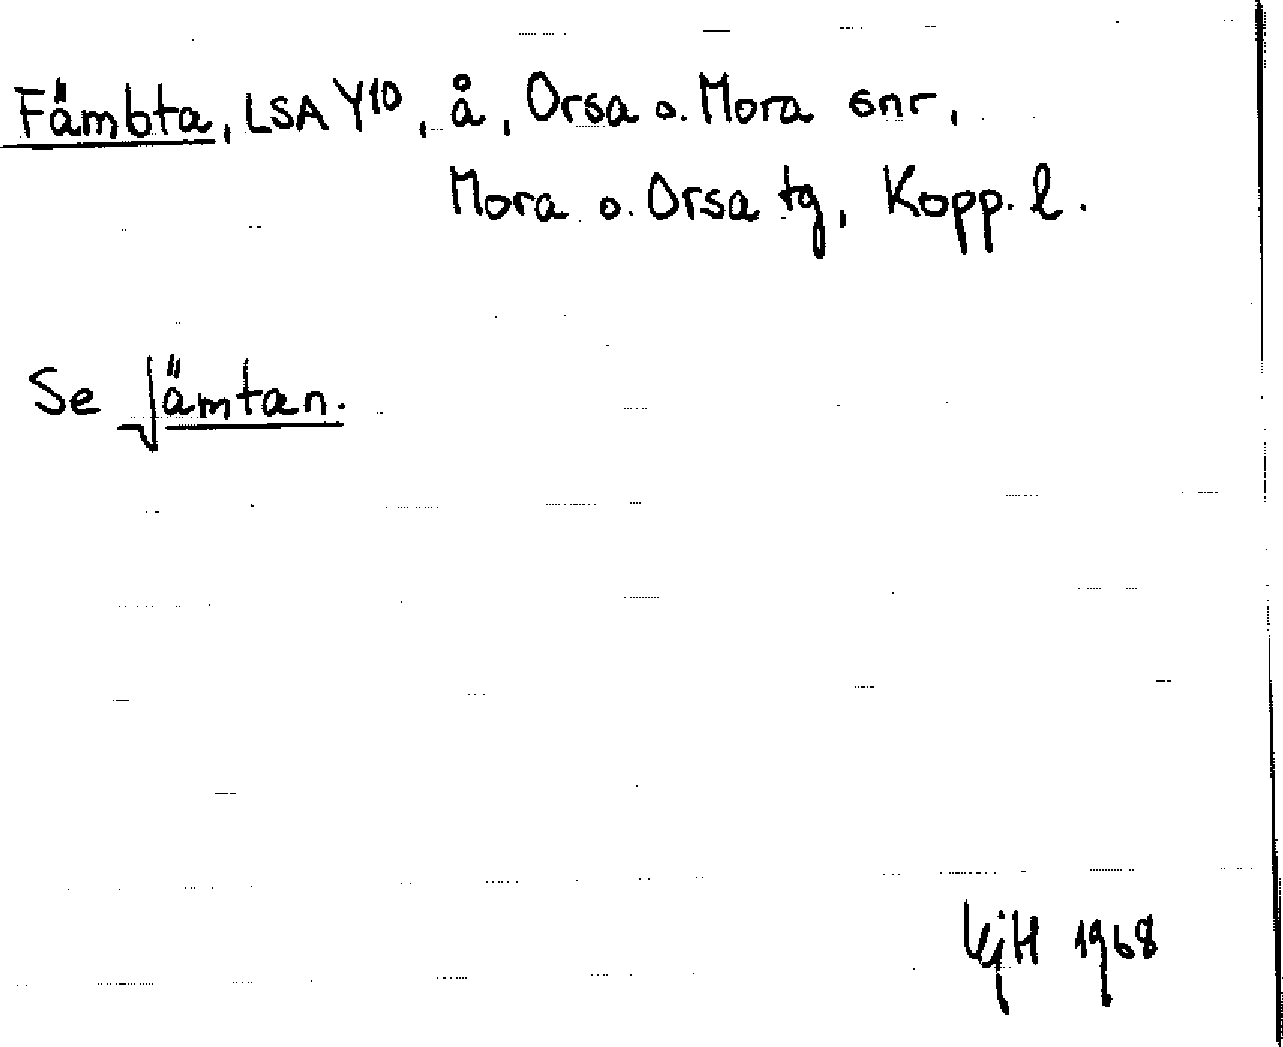 Fämbta, LSA Y10, å, Orsa o. Mora snr,
Mora o. Orsa tg, Kopp. l.
Se Jämtan.
1968